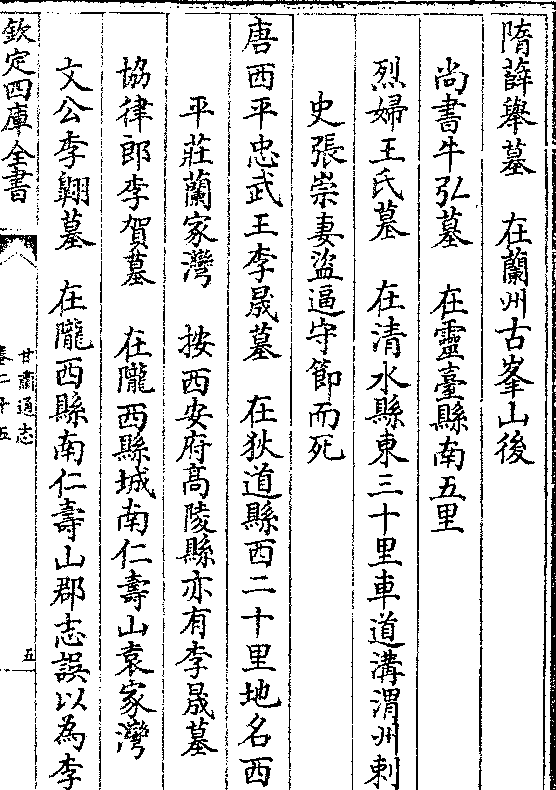 隋薛舉墓　在蘭州古峯山後
尚書牛弘墓　在靈臺縣南五里
烈婦王氏墓　在清水縣東三十里車道溝渭州刺
史張崇妻盜逼守節而死
唐西平忠武王李晟墓　在狄道縣西二十里地名西
平莊蘭家灣　按西安府高陵縣亦有李晟墓
協律郎李賀墓　在隴西縣城南仁壽山袁家灣
文公李翺墓　在隴西縣南仁壽山郡志誤以為李
欽定四庫全書
甘肅通志
卷二十五
五